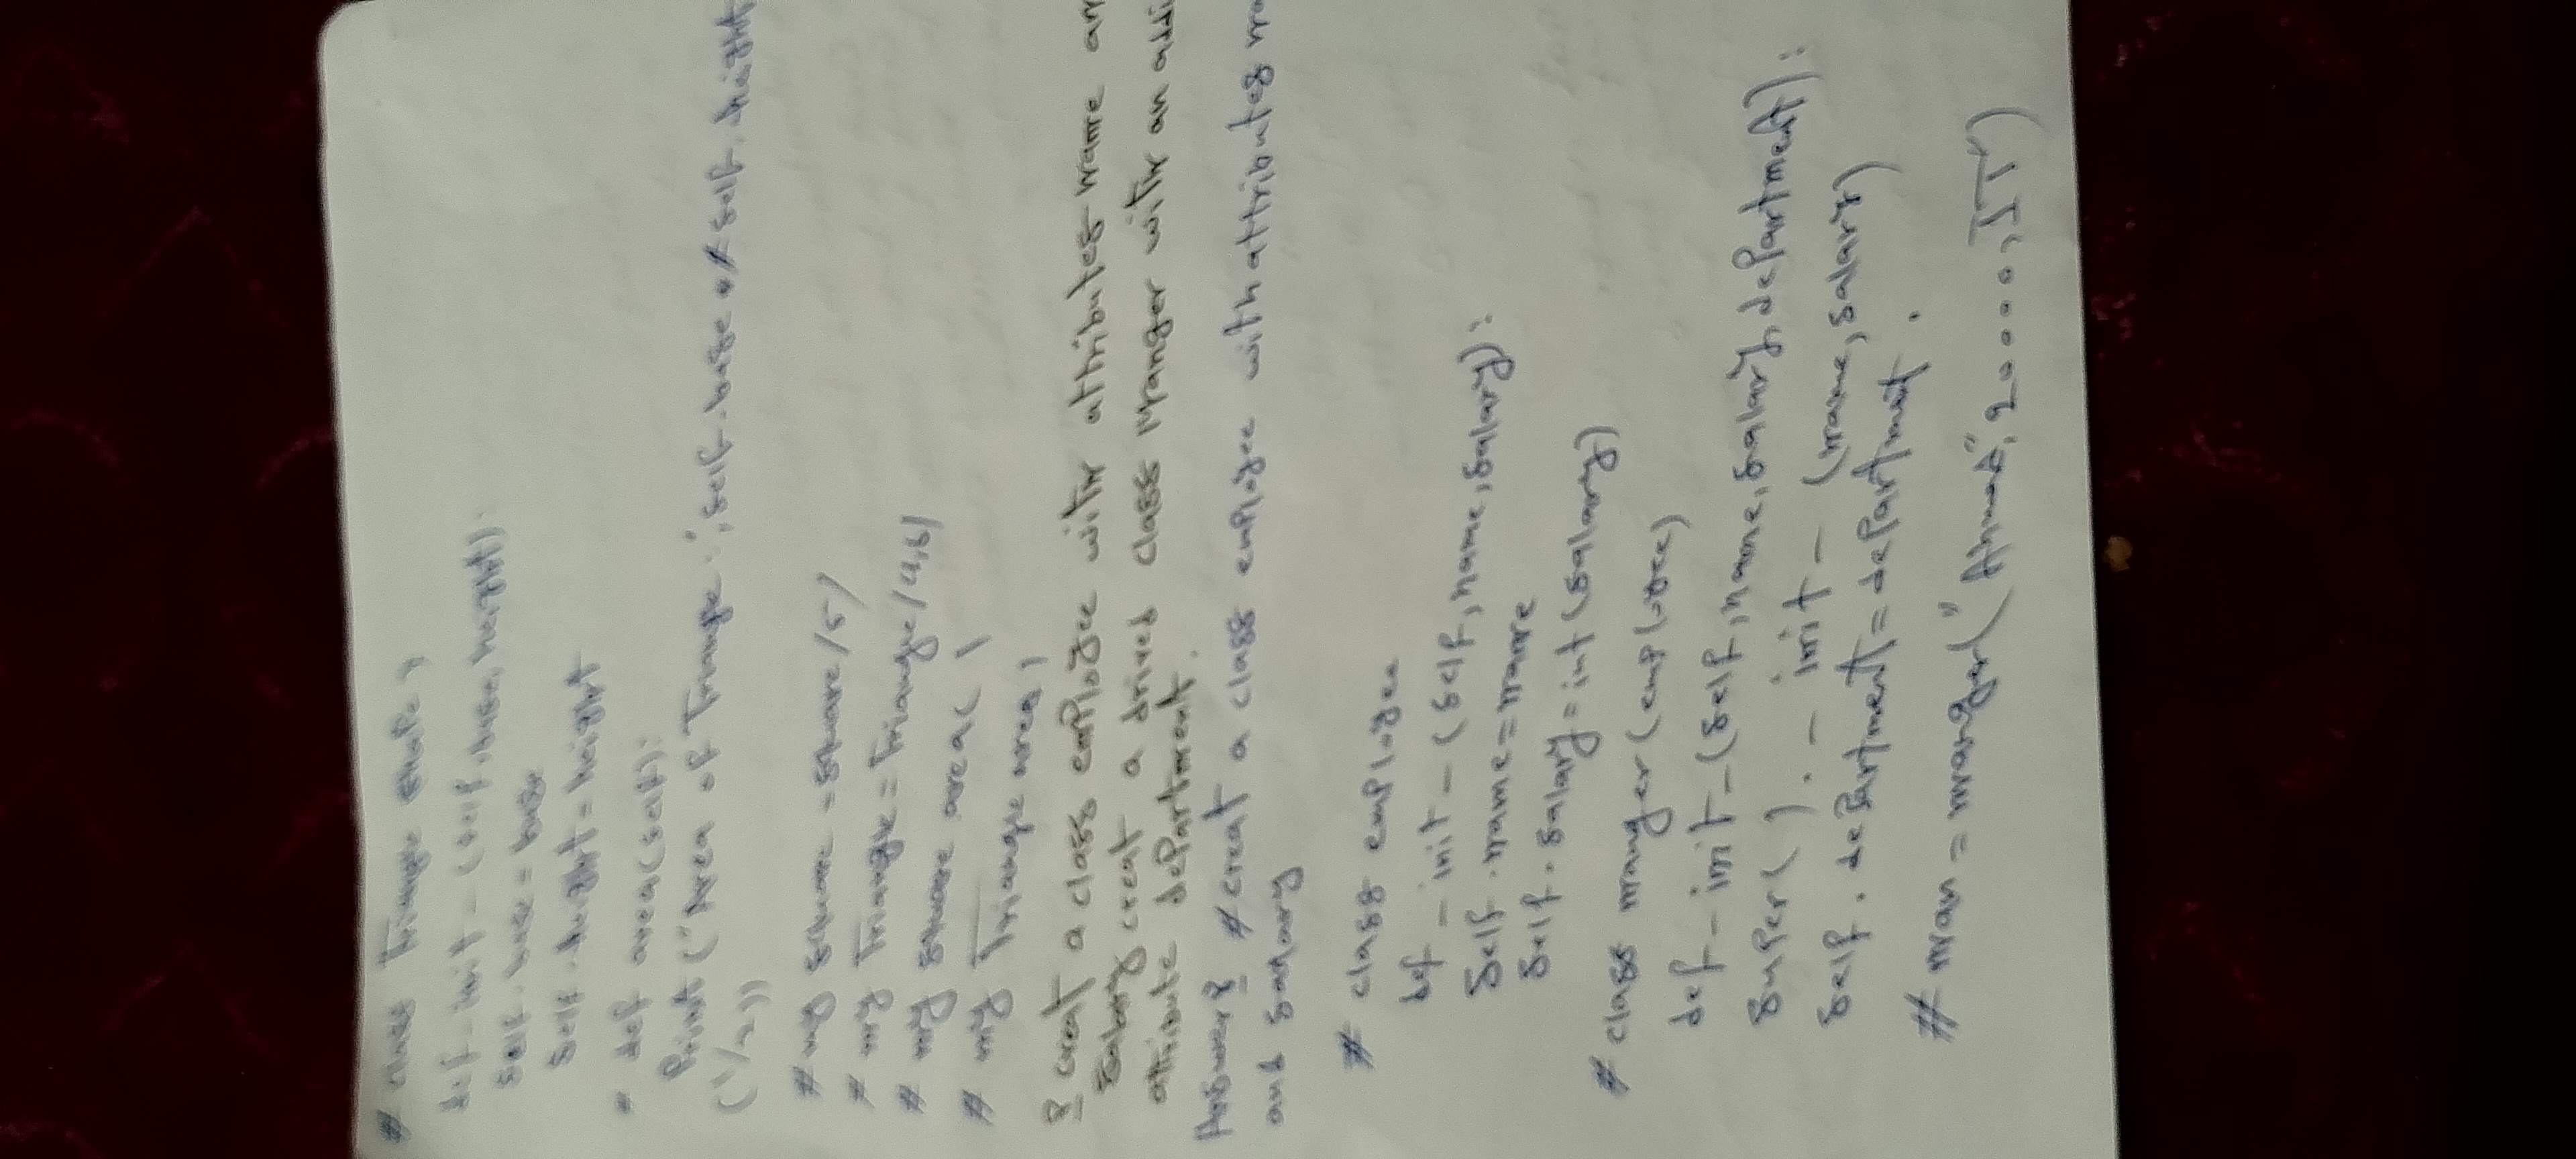 # class Triangle shape)
def - init - (self, base, height):
self. base = base
self. height = height
# def area(self):
Print("Area of Triangle:", self.base * self. height
(1/2))
# my square = square(5)
# my Triangle = Triangle(4,6)
# my square area( )
# my Triangle area )
8 creat a class employee with attributes name an
salary creat a drived class Manger with an addi
attribute department.
Answer 8 # creat a class employe with attributes na
and sanary
# class employee
def - init - (self, name, salary):
Self. name = name
Self. salary = int (salary)
# class manger(employee)
def - init - (self, name, salary, department):
super( ). - init - (name, salary)
self. department = department.
# man = manger("Ahmad", 20000, IT")